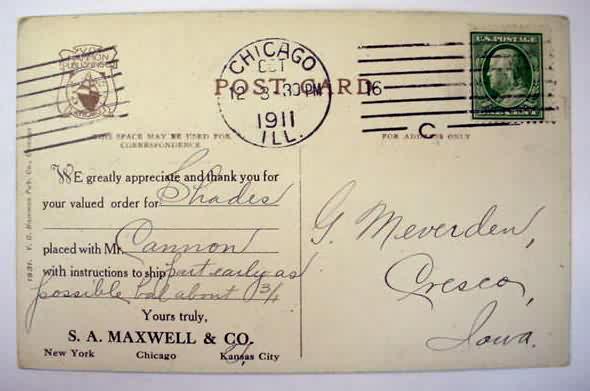 V.O. HAMMON
PUBLISHING
CHICAGO
OCT
12 3 30PM
1911
ILL.
POST CARD
16
C
U.S. POSTAGE
THIS SPACE MAY BE USED FOR
CORRESPONDENCE
FOR ADDRESS ONLY
WE greatly appreciate and thank you for
your valued order for Shades
placed with Mr. Cannon
with instructions to ship part early as
possible bal about 3/1
Yours truly,
S. A. MAXWELL & CO.
New York Chicago Kansas City
G. Meverden,
Cresco,
Iowa.
1931. V. O. Hammon Pub. Co., Chicago